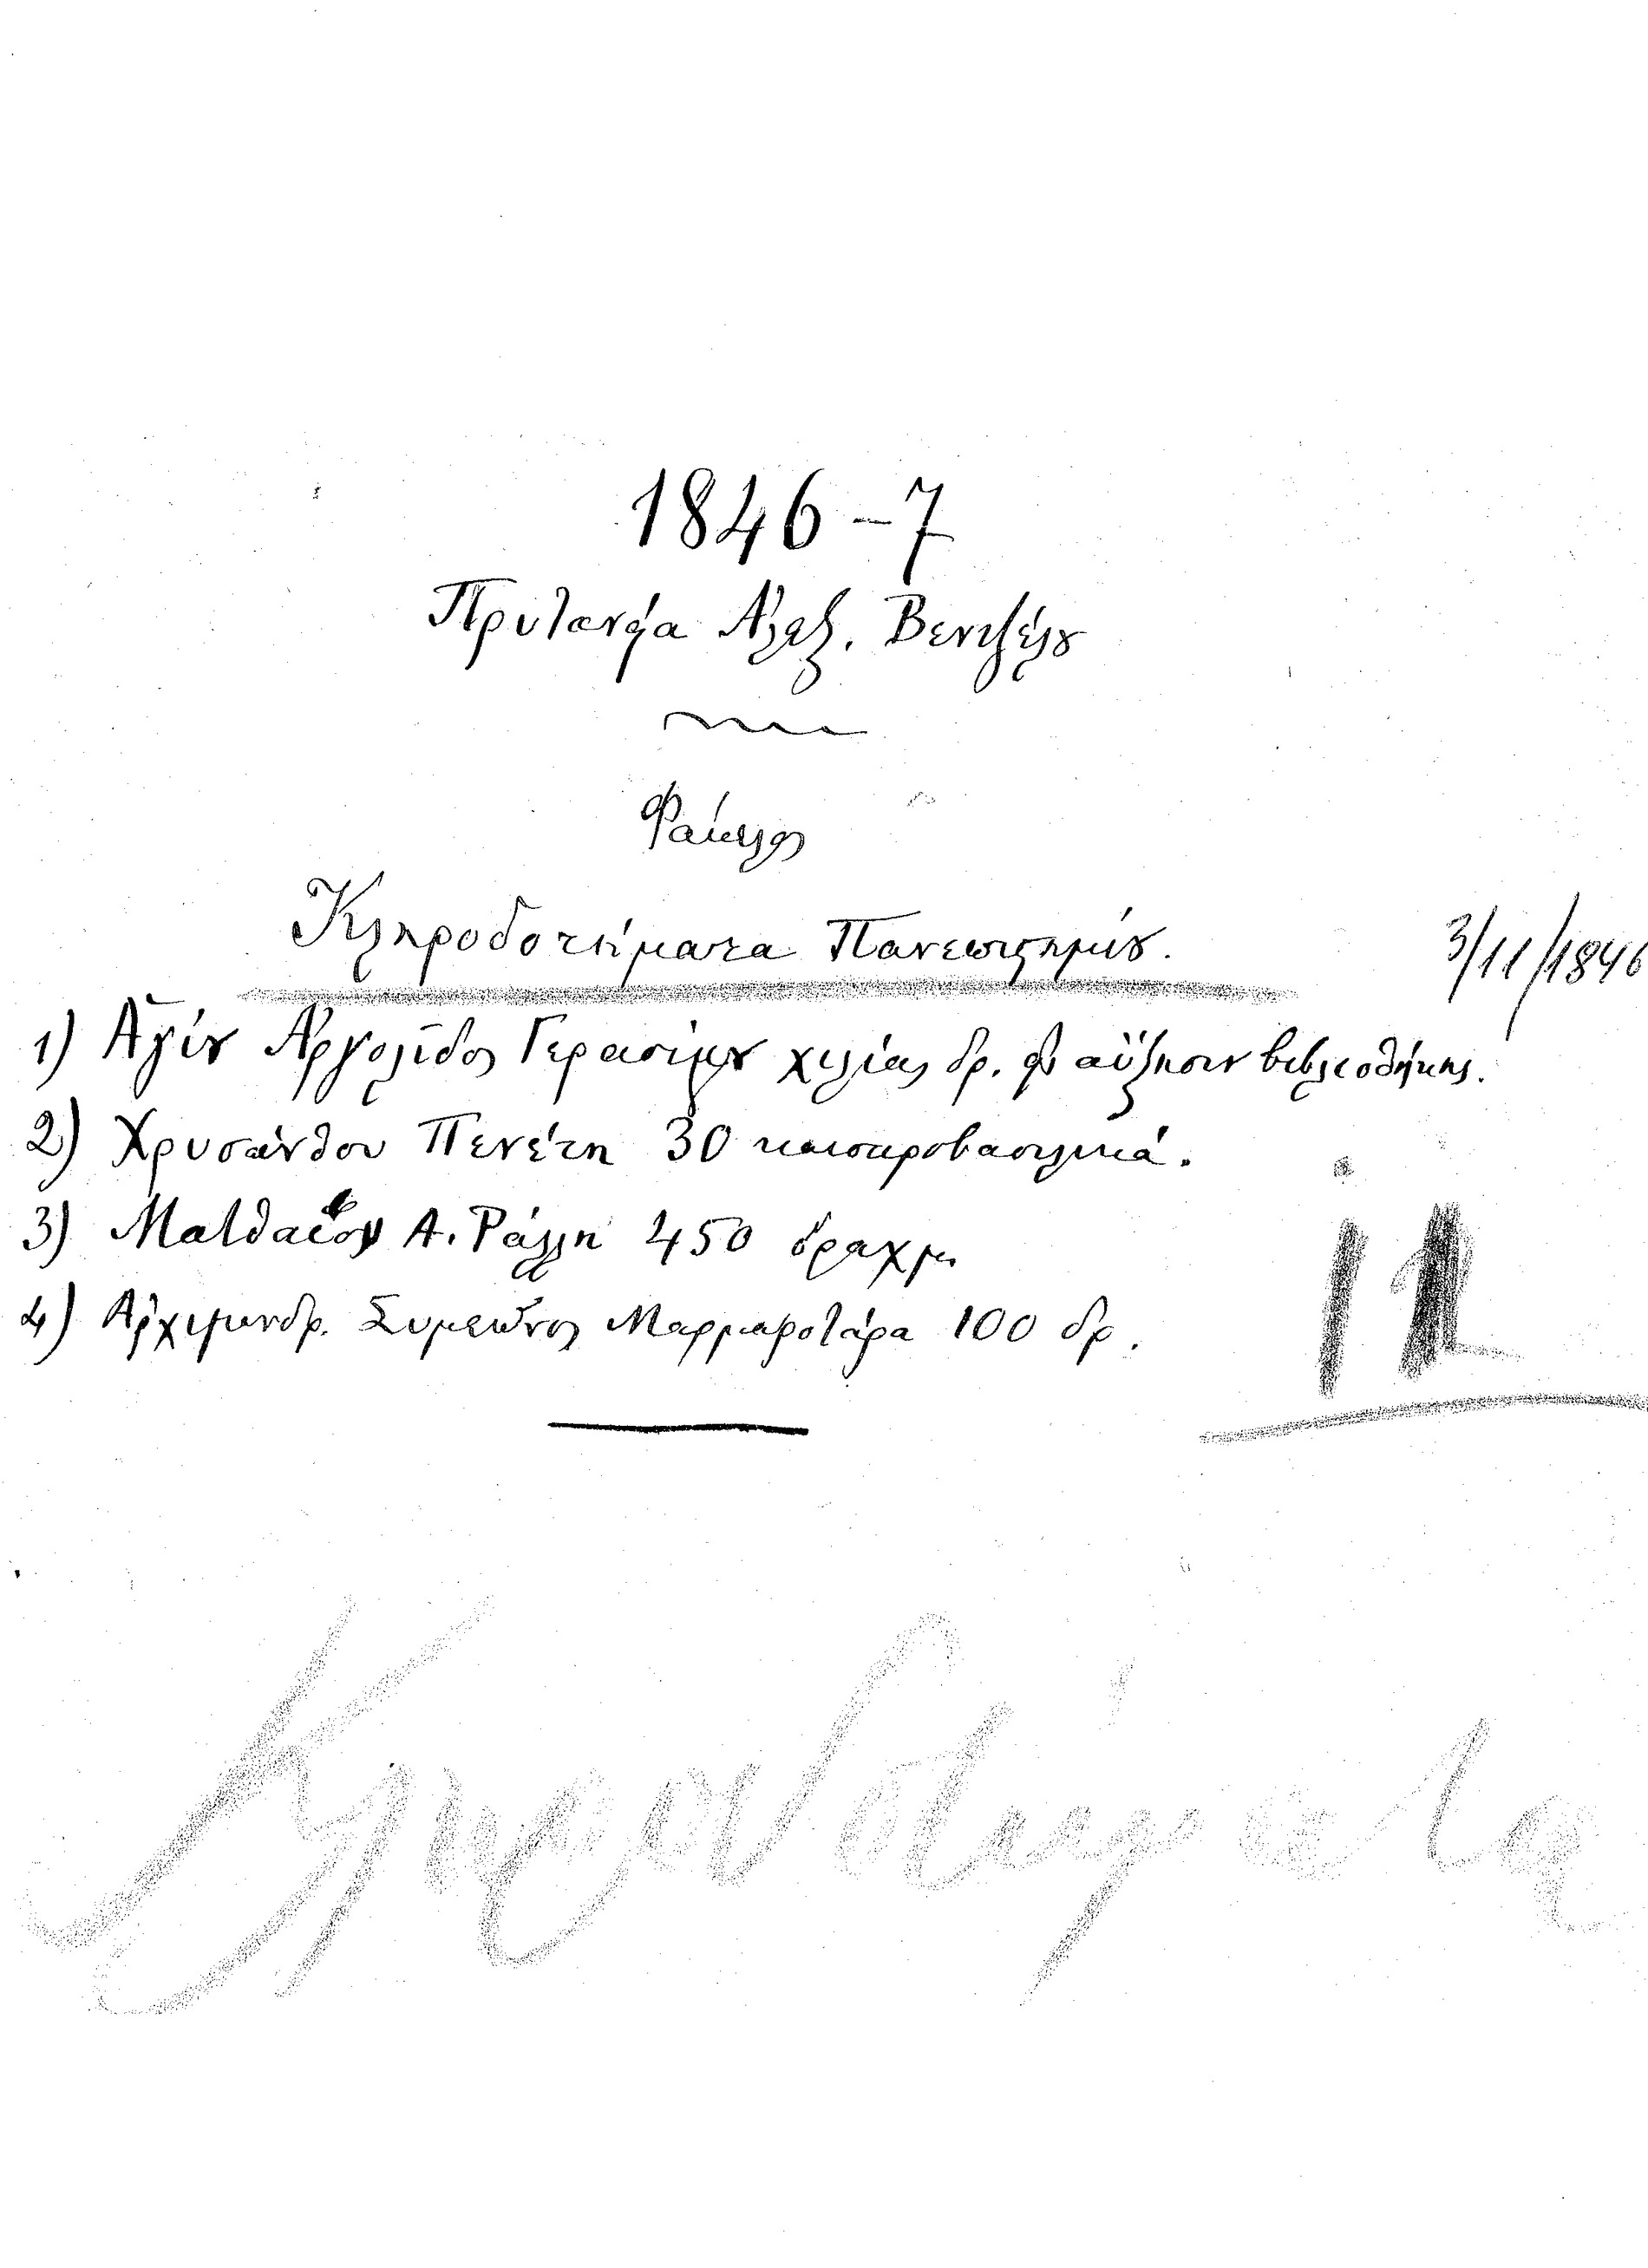 1846-7
Πρυτανεία Ἀλεξ. Βενιζέλου
Φάκελος
Κληροδοτήματα Πανεπιστημίου.
3/11/1846
1) Ἁγίου Ἀργολίδος Γερασίμου χιλίας δρ. εἰς αὔξησιν βιβλιοθήκης.
2) Χρυσάνθου Πενέτη 30 καισαροβασιλικά.
3) Ματθαίου Α. Ράλλη 450 δραχμ
4) Ἀρχιμανδρ. Συμεῶνος Μαρμαροτάρα 100 δρ.
12
Κληροδοτήματα